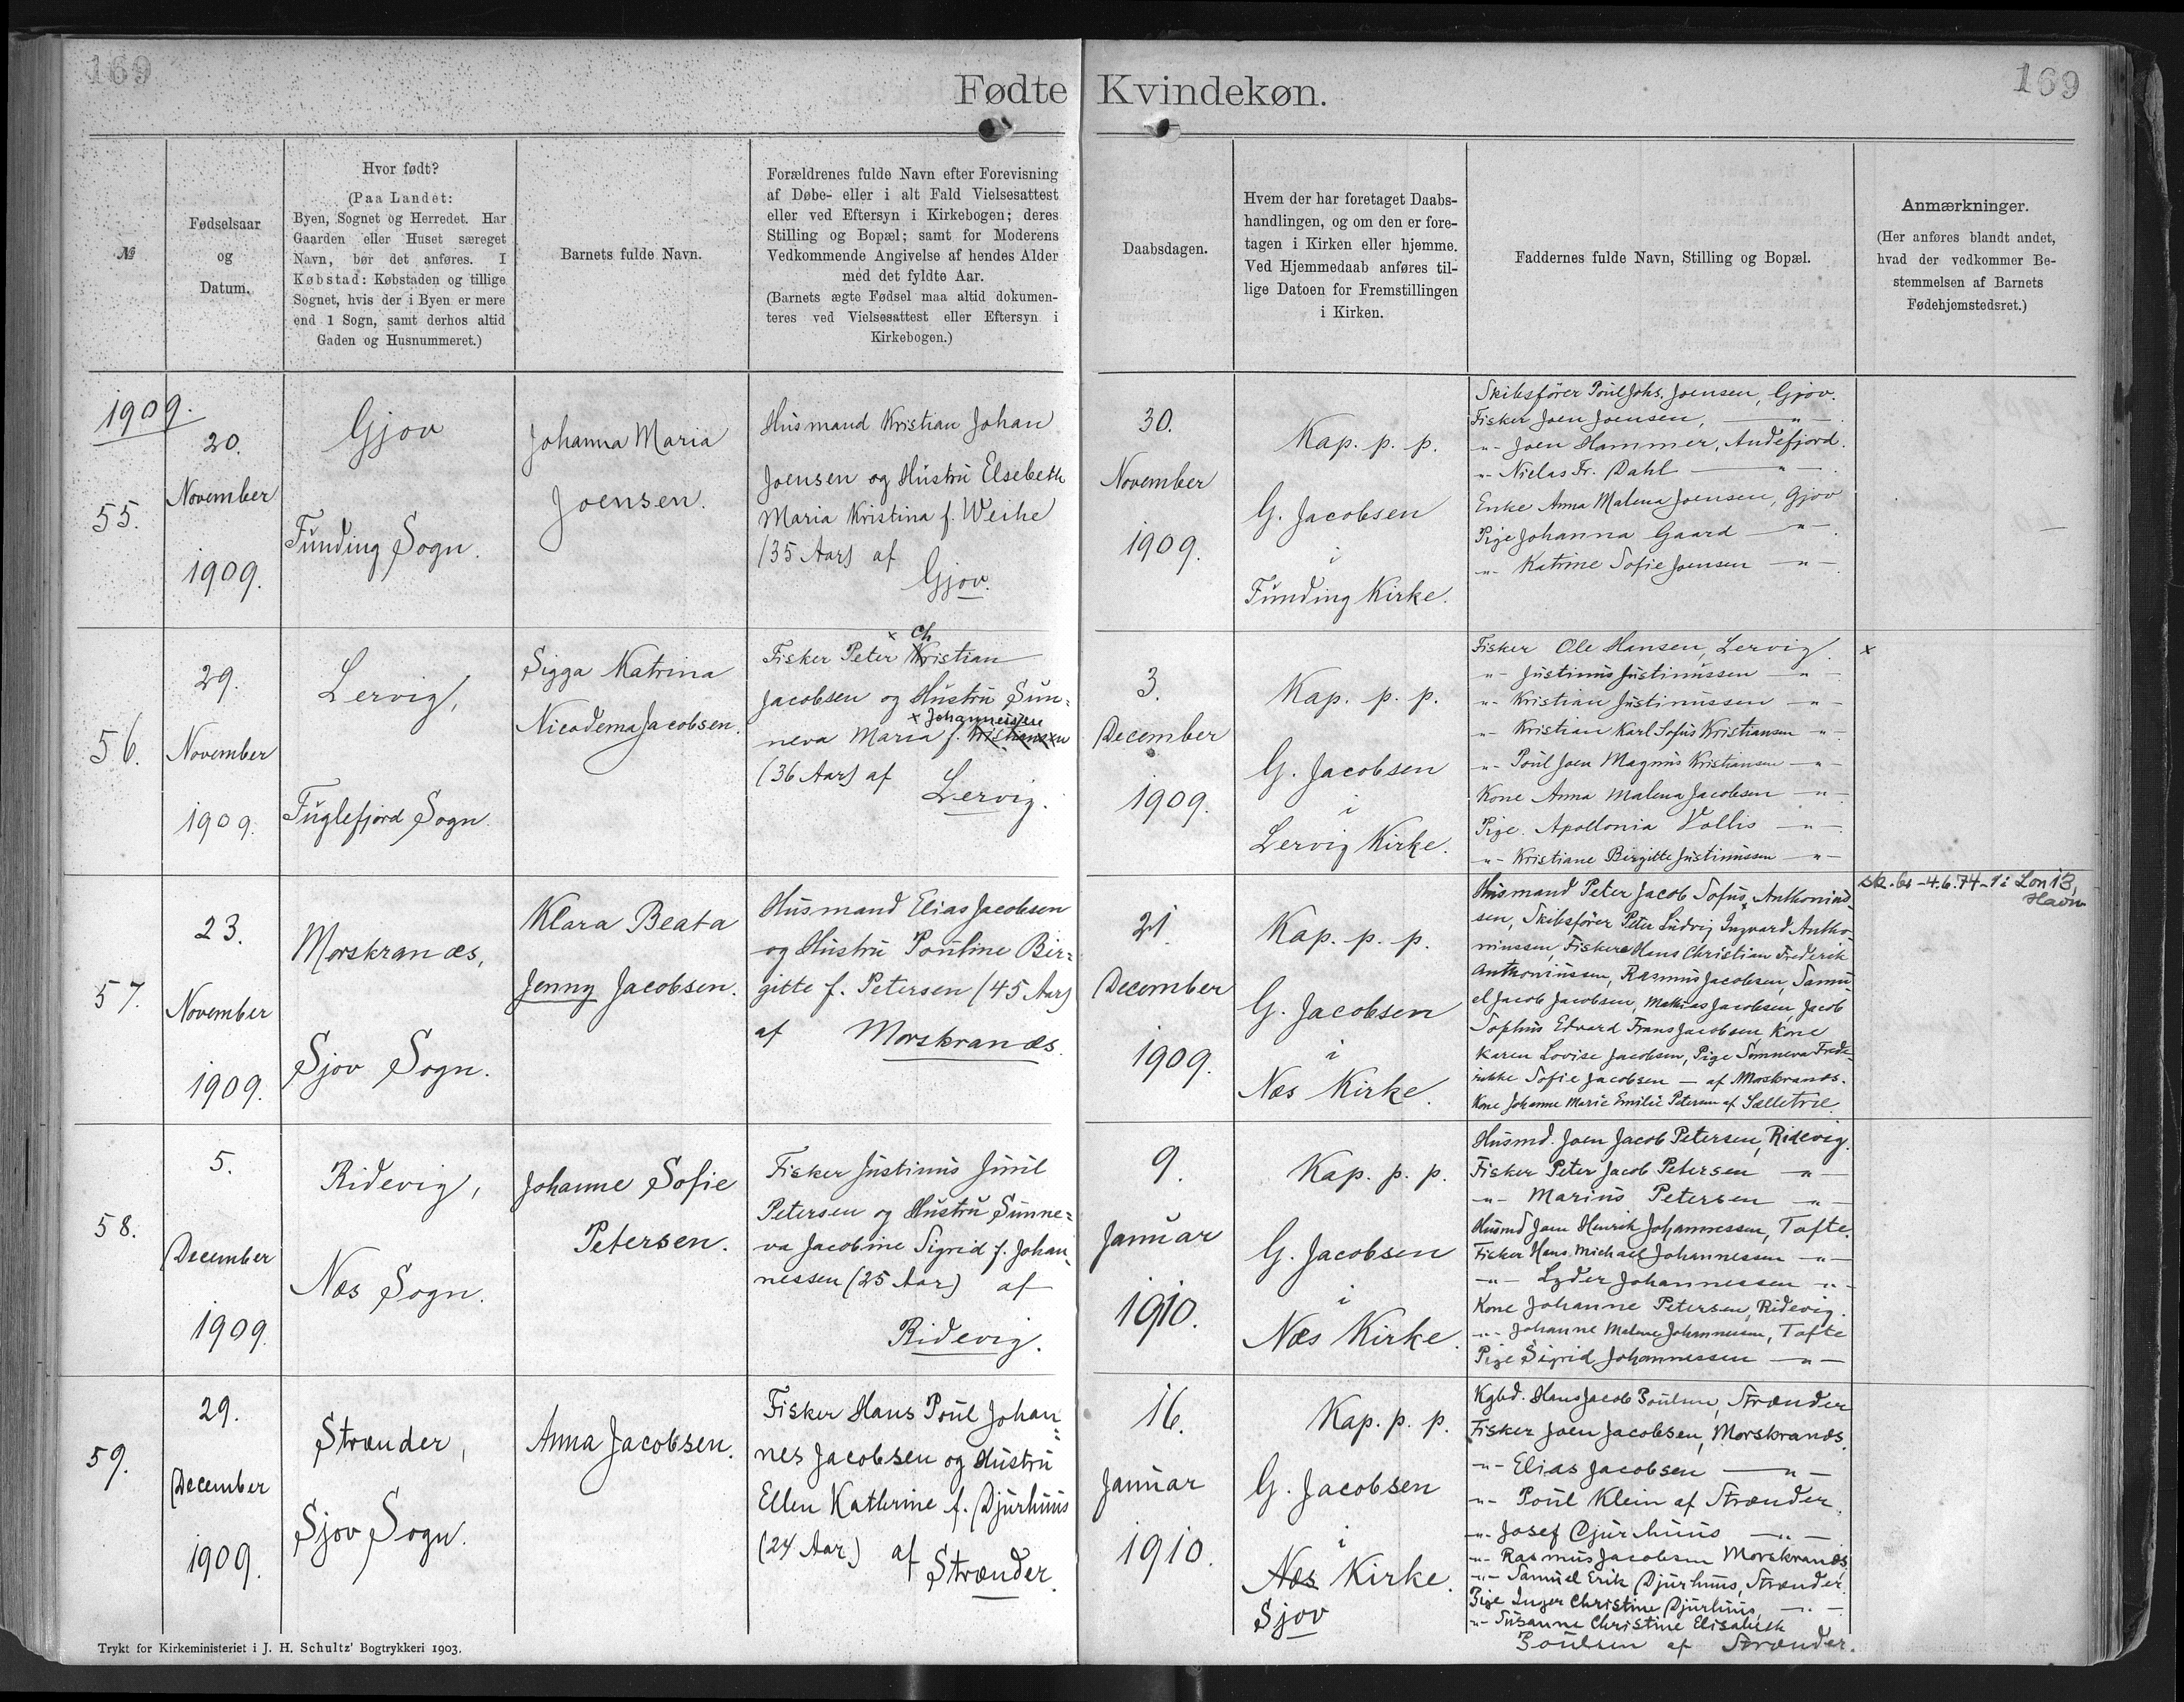 169
169
Fødte Kvindekøn.
№
Fødselsaar
og
Datum.
Hvor født?
(Paa Landet:
Byen, Sognet og Herredet. Har
Gaarden eller Huset særeget
Navn, bør det anføres. I
Købstad: Købstaden og tillige
Sognet, hvis der i Byen er mere
end 1 Sogn, samt derhos altid
Gaden og Husnummeret.)
Barnets fulde Navn.
Forældrenes fulde Navn efter Forevisning
af Døbe- eller i alt Fald Vielsesattest
eller ved Eftersyn i Kirkebogen; deres
Stilling og Bopæl; samt for Moderens
Vedkommende Angivelse af hendes Alder
med det fyldte Aar.
(Barnets ægte Fødsel maa altid dokumen-
teres ved Vielsesattest eller Eftersyn i
Kirkebogen.)
Daabsdagen.
Hvem der har foretaget Daabs-
handlingen, og om den er fore-
tagen i Kirken eller hjemme.
Ved Hjemmedaab anføres til-
lige Datoen for Fremstillingen
i Kirken.
Faddernes fulde Navn, Stilling og Bopæl.
Anmærkninger.
(Her anføres blandt andet,
hvad der vedkommer Be-
stemmelsen af Barnets
Fødehjemstedsret.)
1909.
55.
20.
November
1909.
Gjov
Funding Sogn.
Johanna Maria
Joensen.
Husmand Kristian Johan
Joensen og Hustru Elsebeth
Maria Kristina f. Weihe
(35 Aar) af
Gjov.
30.
November
1909.
Kap. p. p.
G. Jacobsen
i
Funding Kirke.
Skibsfører Poul Johs. Joensen, Gjov.
Fisker Joen Joensen, —"—
-"- Joen Hammer, Andefjord.
-"- Niclas Fr. Dahl —"—
Enke Anna Malena Joensen, Gjov
Pige Johanna Gaard —"—
-"- Katrine Sofie Joensen —"—
—
56.
29.
November
1909.
Lervig,
Fuglefjord Sogn.
Sigga Katrina
Nicodema Jacobsen.
x Ch
Fisker Peter Kristian
Jacobsen og Hustru Sun=
x Johannessen
neva Maria f. Kristiansen
(36 Aar) af
Lervig.
3.
December
1909.
Kap. p. p.
G. Jacobsen
i
Lervig Kirke.
Fisker Ole Hansen, Lervig.
-"- Justinus Justinussen —"—
-"- Kristian Justinussen —"—
-"- Kristian Karl Sofus Kristiansen -"-
-"- Poul Joen Magnus Kristiansen —"—
Kone Anna Malena Jacobsen —"—
Pige Apollonia Vollis —"—
-"- Kristiane Birgitte Justinussen —"—
x
57.
23.
November
1909.
Morskranæs,
Sjov Sogn.
Klara Beata
Jenny Jacobsen.
Husmand Elias Jacobsen
og Hustru Pouline Bir=
gitte f. Petersen (45 Aar)
af Morskranæs.
21.
December
1909.
Kap. p. p.
G. Jacobsen
i
Næs Kirke.
Husmand Peter Jacob Sofus Anthonius-
sen, Skibsfører Peter Ludvig Ingvard Antho-
niussen, Fiskere Hans Christian Frederik
Anthoniussen, Rasmus Jacobsen, Samu-
el Jacob Jacobsen, Mathias Jacobsen, Jacob
Sophus Edvard Frans Jacobsen, Kone
Karen Lovise Jacobsen, Pige Sunneva Frede-
rikke Sofie Jacobsen — af Morskranæs.
Kone Johanne Marie Emilie Petersen af Selletræ.
sk. bs -4.6.74-
Havn
58.
5.
December
1909.
Ridevig,
Næs Sogn.
Johanne Sofie
Petersen.
Fisker Justinus Juul
Petersen og Hustru Sunne=
va Jacobine Sigrid f. Johan-
nessen (25 Aar) af
Ridevig.
9.
Januar
1910.
Kap. p. p.
G. Jacobsen
i
Næs Kirke.
Husmd. Joen Jacob Petersen, Ridevig.
Fisker Peter Jacob Petersen —"—
-"- Marius Petersen —"—
Husmd Joen Henrik Johannessen, Tofte.
Fisker Hans Michael Johannessen —"—
-"- Lyder Johannessen —"—
Kone Johanne Petersen, Ridevig.
-"- Johanne Malene Johannessen, Tofte
Pige Sigrid Johannessen —"—
59.
29.
December
1909.
Strænder,
Sjov Sogn.
Anna Jacobsen.
Fisker Hans Poul Johan=
nes Jacobsen og Hustru
Ellen Kathrine f. Djurhuus
(24 Aar) af Strænder.
16.
Januar
1910.
Kap. p. p.
G. Jacobsen
i
Næs Kirke.
Sjov
Kgbd. Hans Jacob Poulsen, Strænder
Fisker Joen Jacobsen, Morskranæs.
-"- Elias Jacobsen —"—
-"- Poul Klein af Strænder
-"- Josef Djurhuus —"—
-"- Rasmus Jacobsen Morskranæs,
-"- Samuel Erik Djurhuus, Strænder.
Pige Inger Christine Djurhuus, —"—
-"- Susanne Christine Elisabeth
Poulsen af Strænder.
Trykt for Kirkeministeriet i J. H. Schultz' Bogtrykkeri 1903.